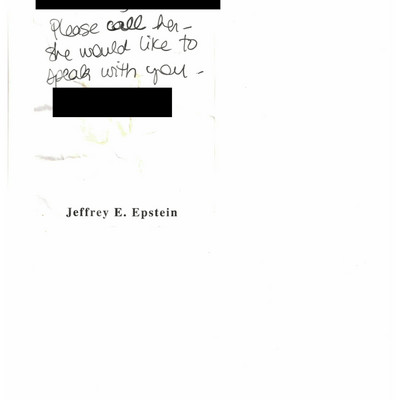 Please call her –
she would like to
speak with you –
Jeffrey E. Epstein